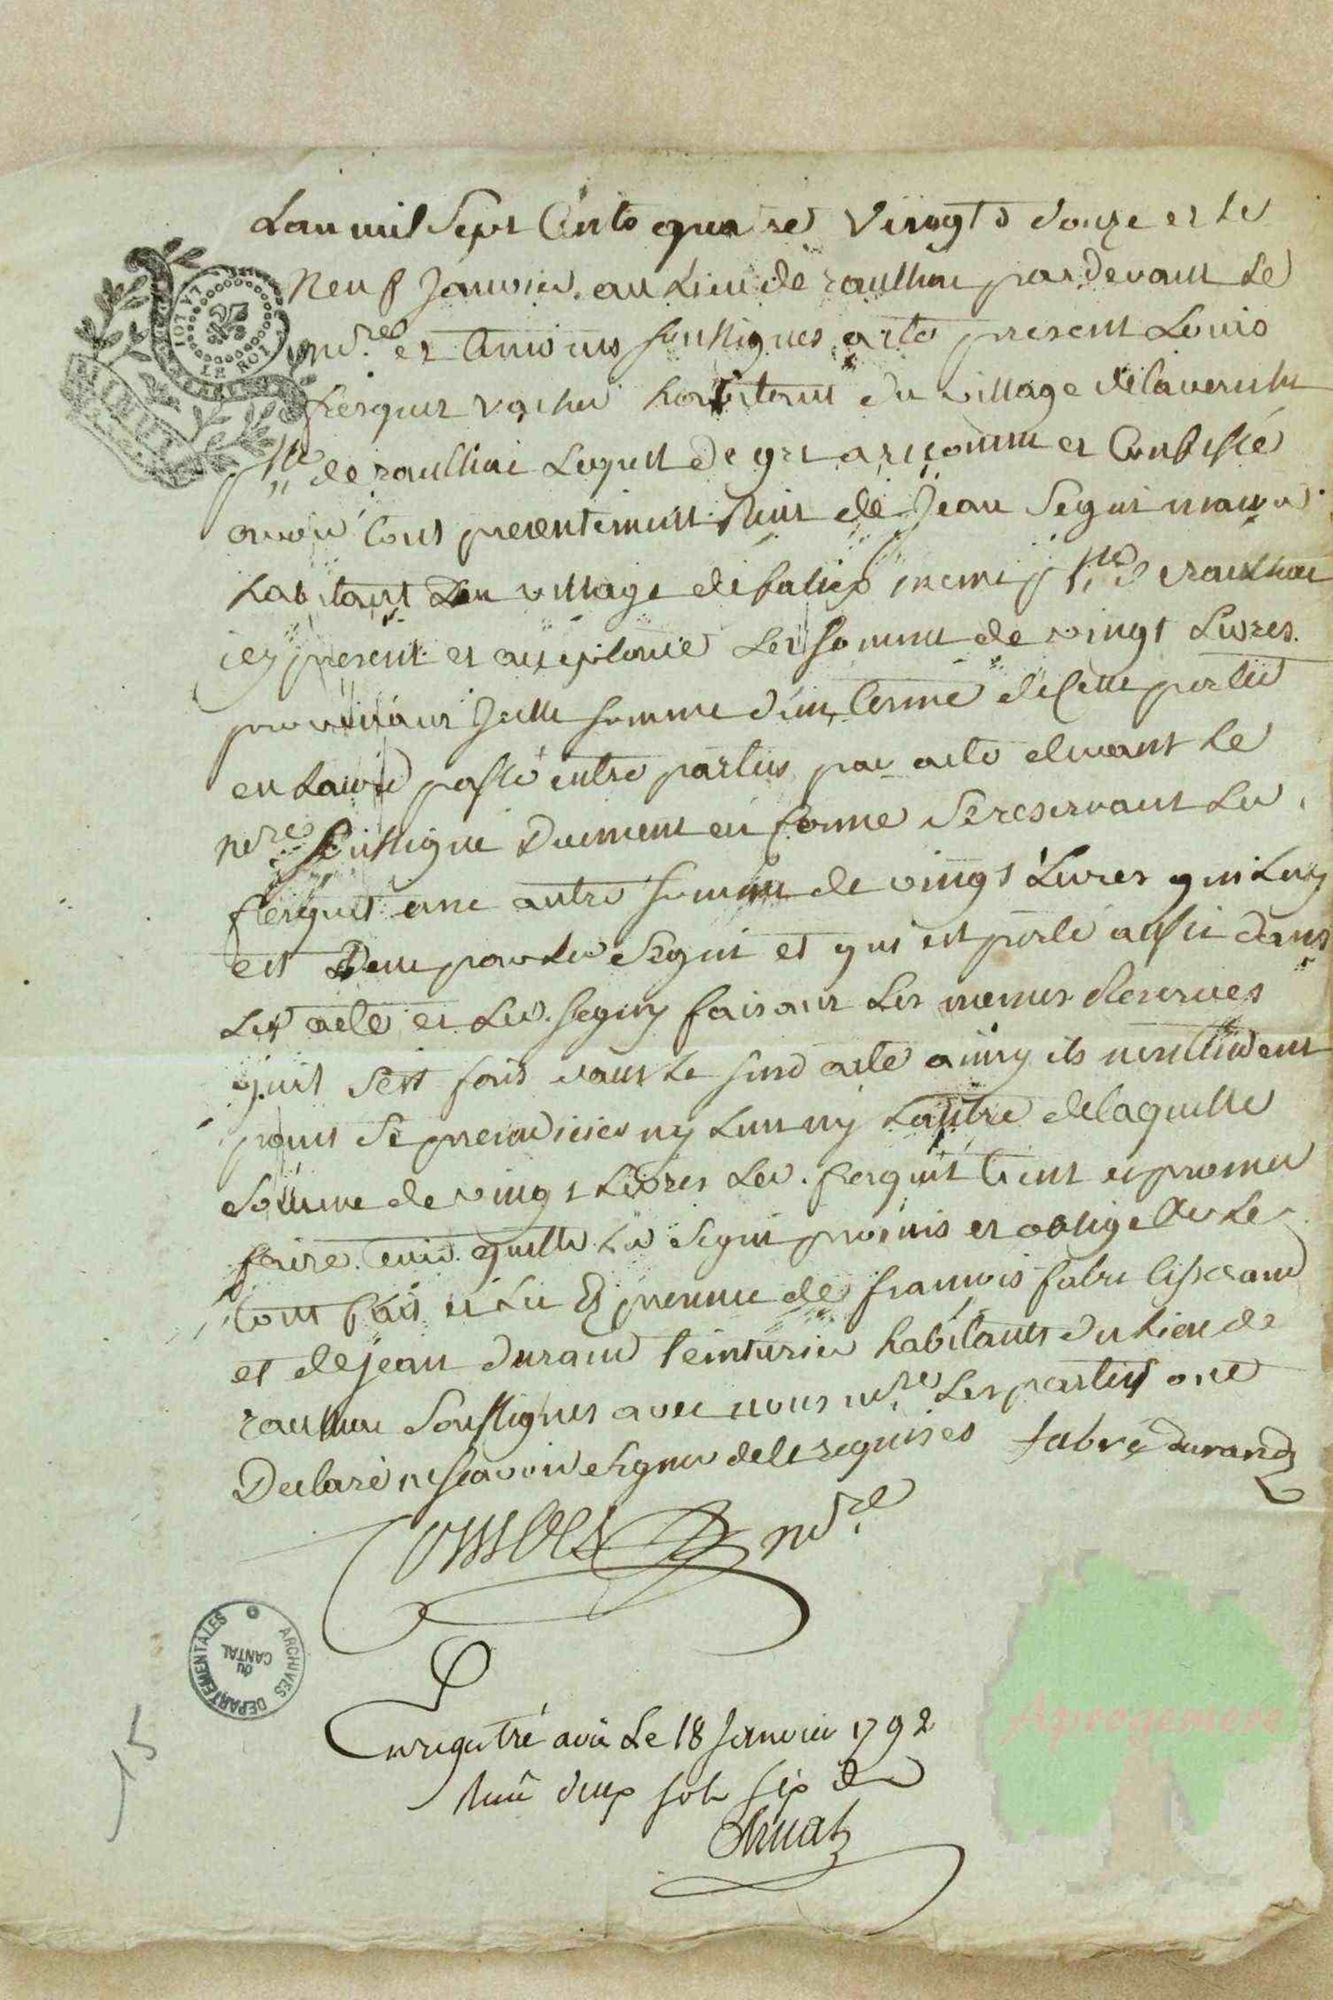 Lan mil Sept Cents quatre vingts douze et le
neuf Janvier. au Lieu de raulhac pardevant Le
nore. et temoins soussignes a ete present Louis
ferguet vacher habitant du village de
psse de raulhac Lequel de gre a reconnu et confesse
avoir tout presentement Reçu de Jean Seguy
habitant du village de meme psse de raulhac
icy present et acceptant La somme de vingt Livres.
provenant Icelle somme d'un terme de cette portée
en Lacte passé entre parties par acte devant Le
nore. soussigné Duement en forme Se reservant Led.
ferguet une autre somme de vingt Livres qui Luy
est Deue par Led Seguy et qui est porté aussi dans
Led acte et Led. seguy faisant Les memes Reserves
quil sest fait dans le susd acte ainsy ils nentendent
point se prejudicier ny Lun ny Lautre de laquelle
somme de vingt Livres Led. ferguet tient et promet
faire tenir quitte Led Seguy promis et obligé &c Le
tout fait et Lu En presence de francois fabre tisserand
et de jean durand teinturier habitants du Lieu de
raulhac Soussignes avec nous nore. Les parties ont
Declaré ne scavoir signer de ce requises fabre durand
nore.
Enregistré a vic Le 18 Janvier 1792
Reçu deux sols six d
15
LA LOI ET LE ROI
ARCHIVES DEPARTEMENTALES
du
CANTAL
Aprogemere